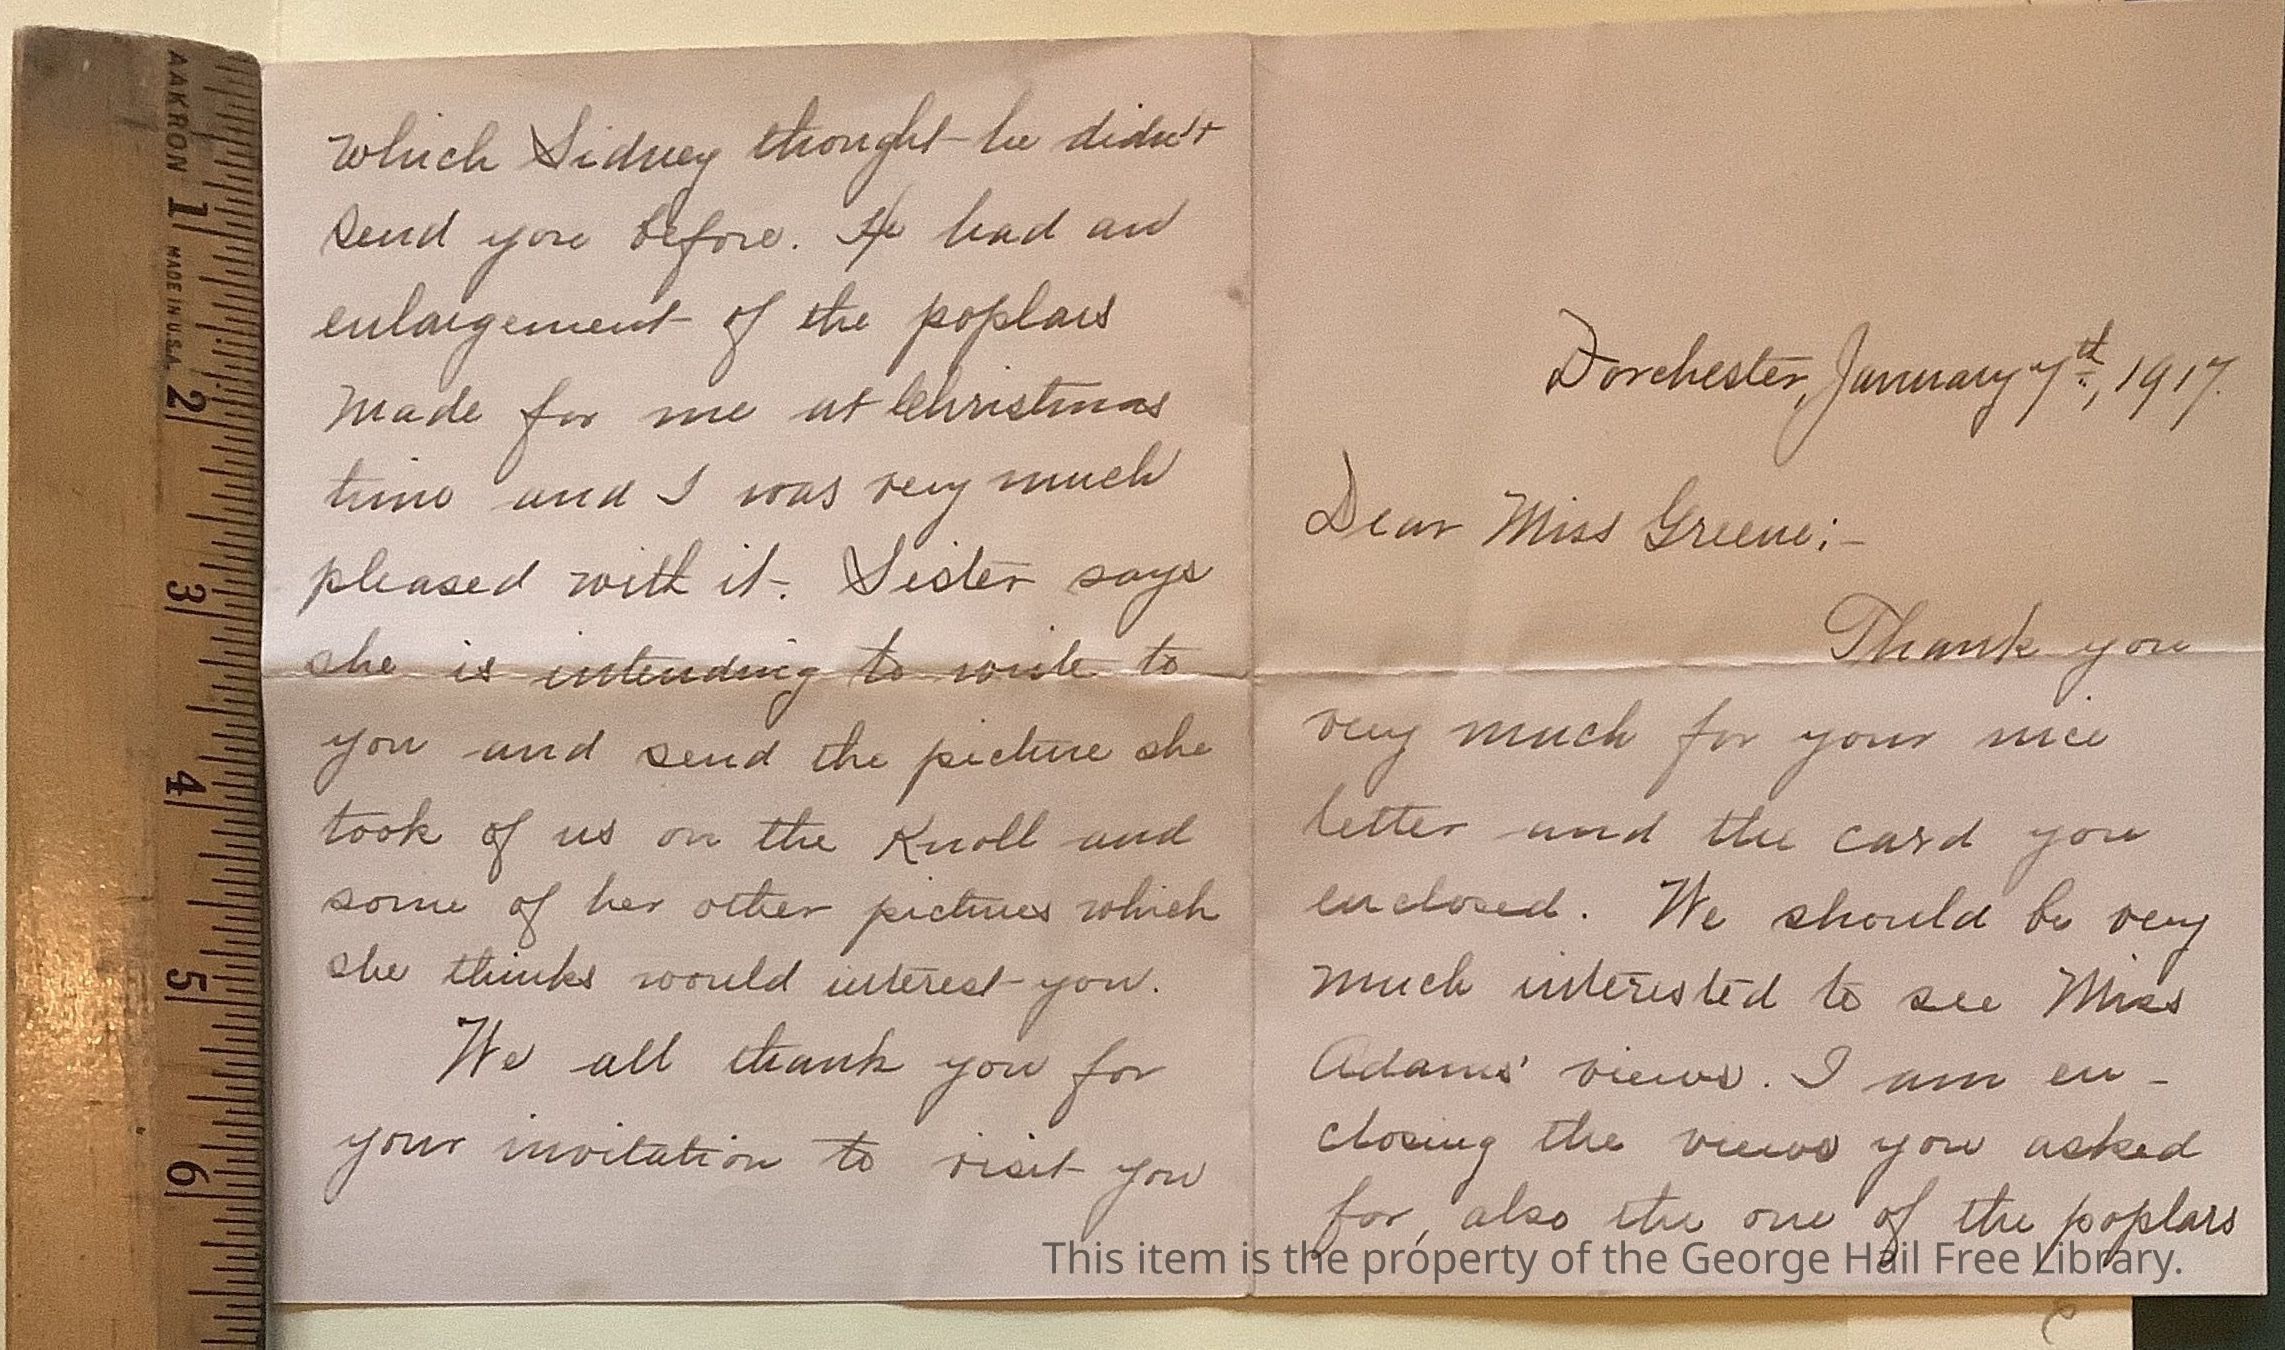 Dorchester, January 7th, 1917.
Dear Miss Greene;-
Thank you
very much for your nice
letter and the card you
enclosed. We should be very
much interested to see Miss
Adams' views. I am en-
closing the views you asked
for, also the one of the poplars
which Sidney thought he didn't
send you before. He had an
enlargement of the poplars
made for me at Christmas
time and I was very much
pleased with it. Sister says
she is intending to write to
you and send the picture she
took of us on the Knoll and
some of her other pictures which
she thinks would interest you.
We all thank you for
your invitation to visit you
This item is the property of the George Hail Free Library.
AAKRON 1 MADE IN U.S.A. 2 3 4 5 6